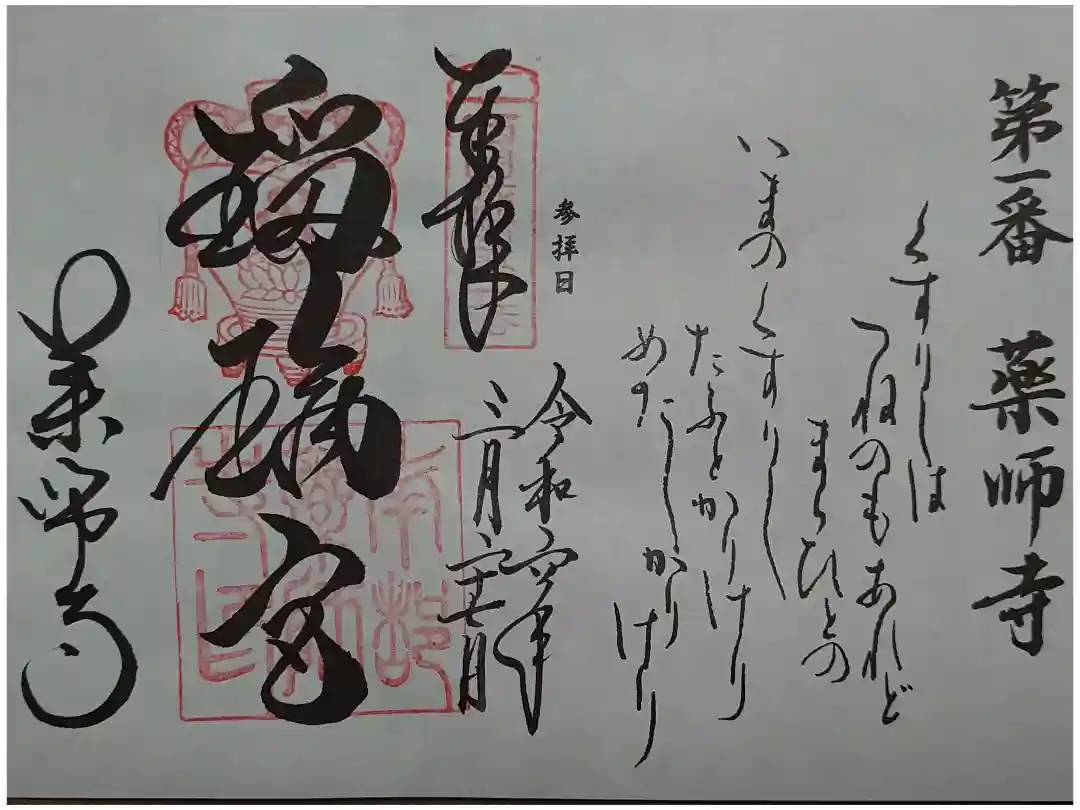 第一番 薬師寺
くすりしは
つねのもあれど
まらひとの
いまのくすりし
たふとかりけり
めだしかりけり
参拝日
奉拝
令和六年
三月二十七日
瑠璃宮
薬師寺